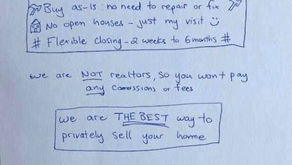 Buy as-is: no need to repair or fix
No open houses - just my visit
# Flexible closing - 2 weeks to 6 months #
we are NOT realtors, so you won't pay
any comissions or fees
we are THE BEST way to
privately sell your home